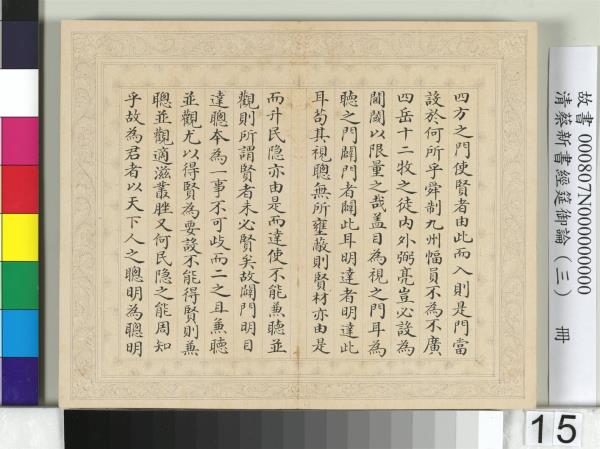 四方之門使賢者由此而入則是門當
設於何所乎舜制九州幅員不為不廣
四岳十二牧之徒內外弼亮豈必設為
閶闔以限量之哉蓋目為視之門耳為
聽之門闢門者闢此耳明達者明達此
耳苟其視聽無所壅蔽則賢材亦由是
而升民隱亦由是而達使不能兼聽並
觀則所謂賢者未必賢矣故闢門明目
達聰本為一事不可歧而二之且兼聽
並觀尤以得賢為要設不能得賢則兼
聽並觀適滋叢脞又何民隱之能周知
乎故為君者以天下人之聰明為聰明
故書000807N000000000
清蔡新書經筵御論（三） 冊
15